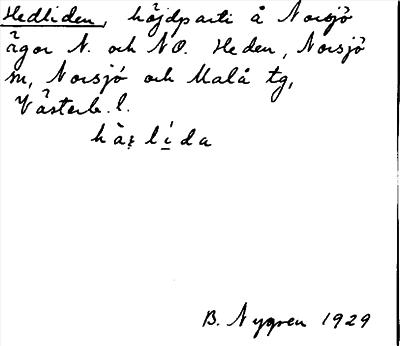 Hedliden, höjdparti å Norsjö
ägor N. och NO. Heden, Norsjö
sn, Norsjö och Malå tg,
Västerb. l.
B. Nygren 1929